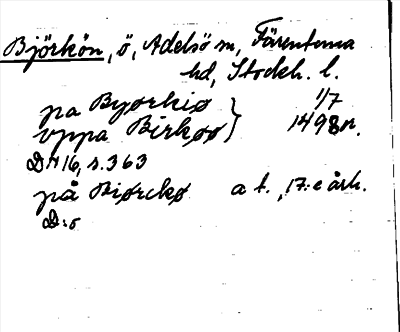 Björkön, ö, Adelsö sn, Färentuna
hd, Stockh. l.
pa Byørkiø } 1/7
vppa Birkøø } 1498 n.
D 16, s. 363
på Biørckø a t., 17:e årh.
D:o